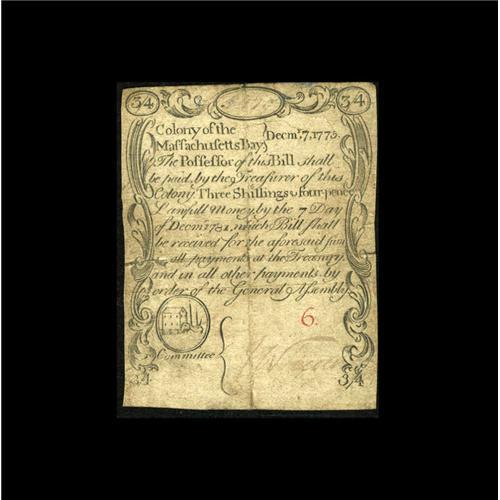 34 34
Colony of the
Massachusetts Bay } Decmr. 7, 1775.
The Possessor of this Bill shall
be paid by the Treasurer of this
Colony Three Shillings & four-pence
Lawfull Money, by the 7 Day
of Decmr. 1781, which Bill shall
be received for the aforesaid sum
in all payments at the Treasury
and in all other payments by
order of the General Assembly
Committee {
6.
34 34